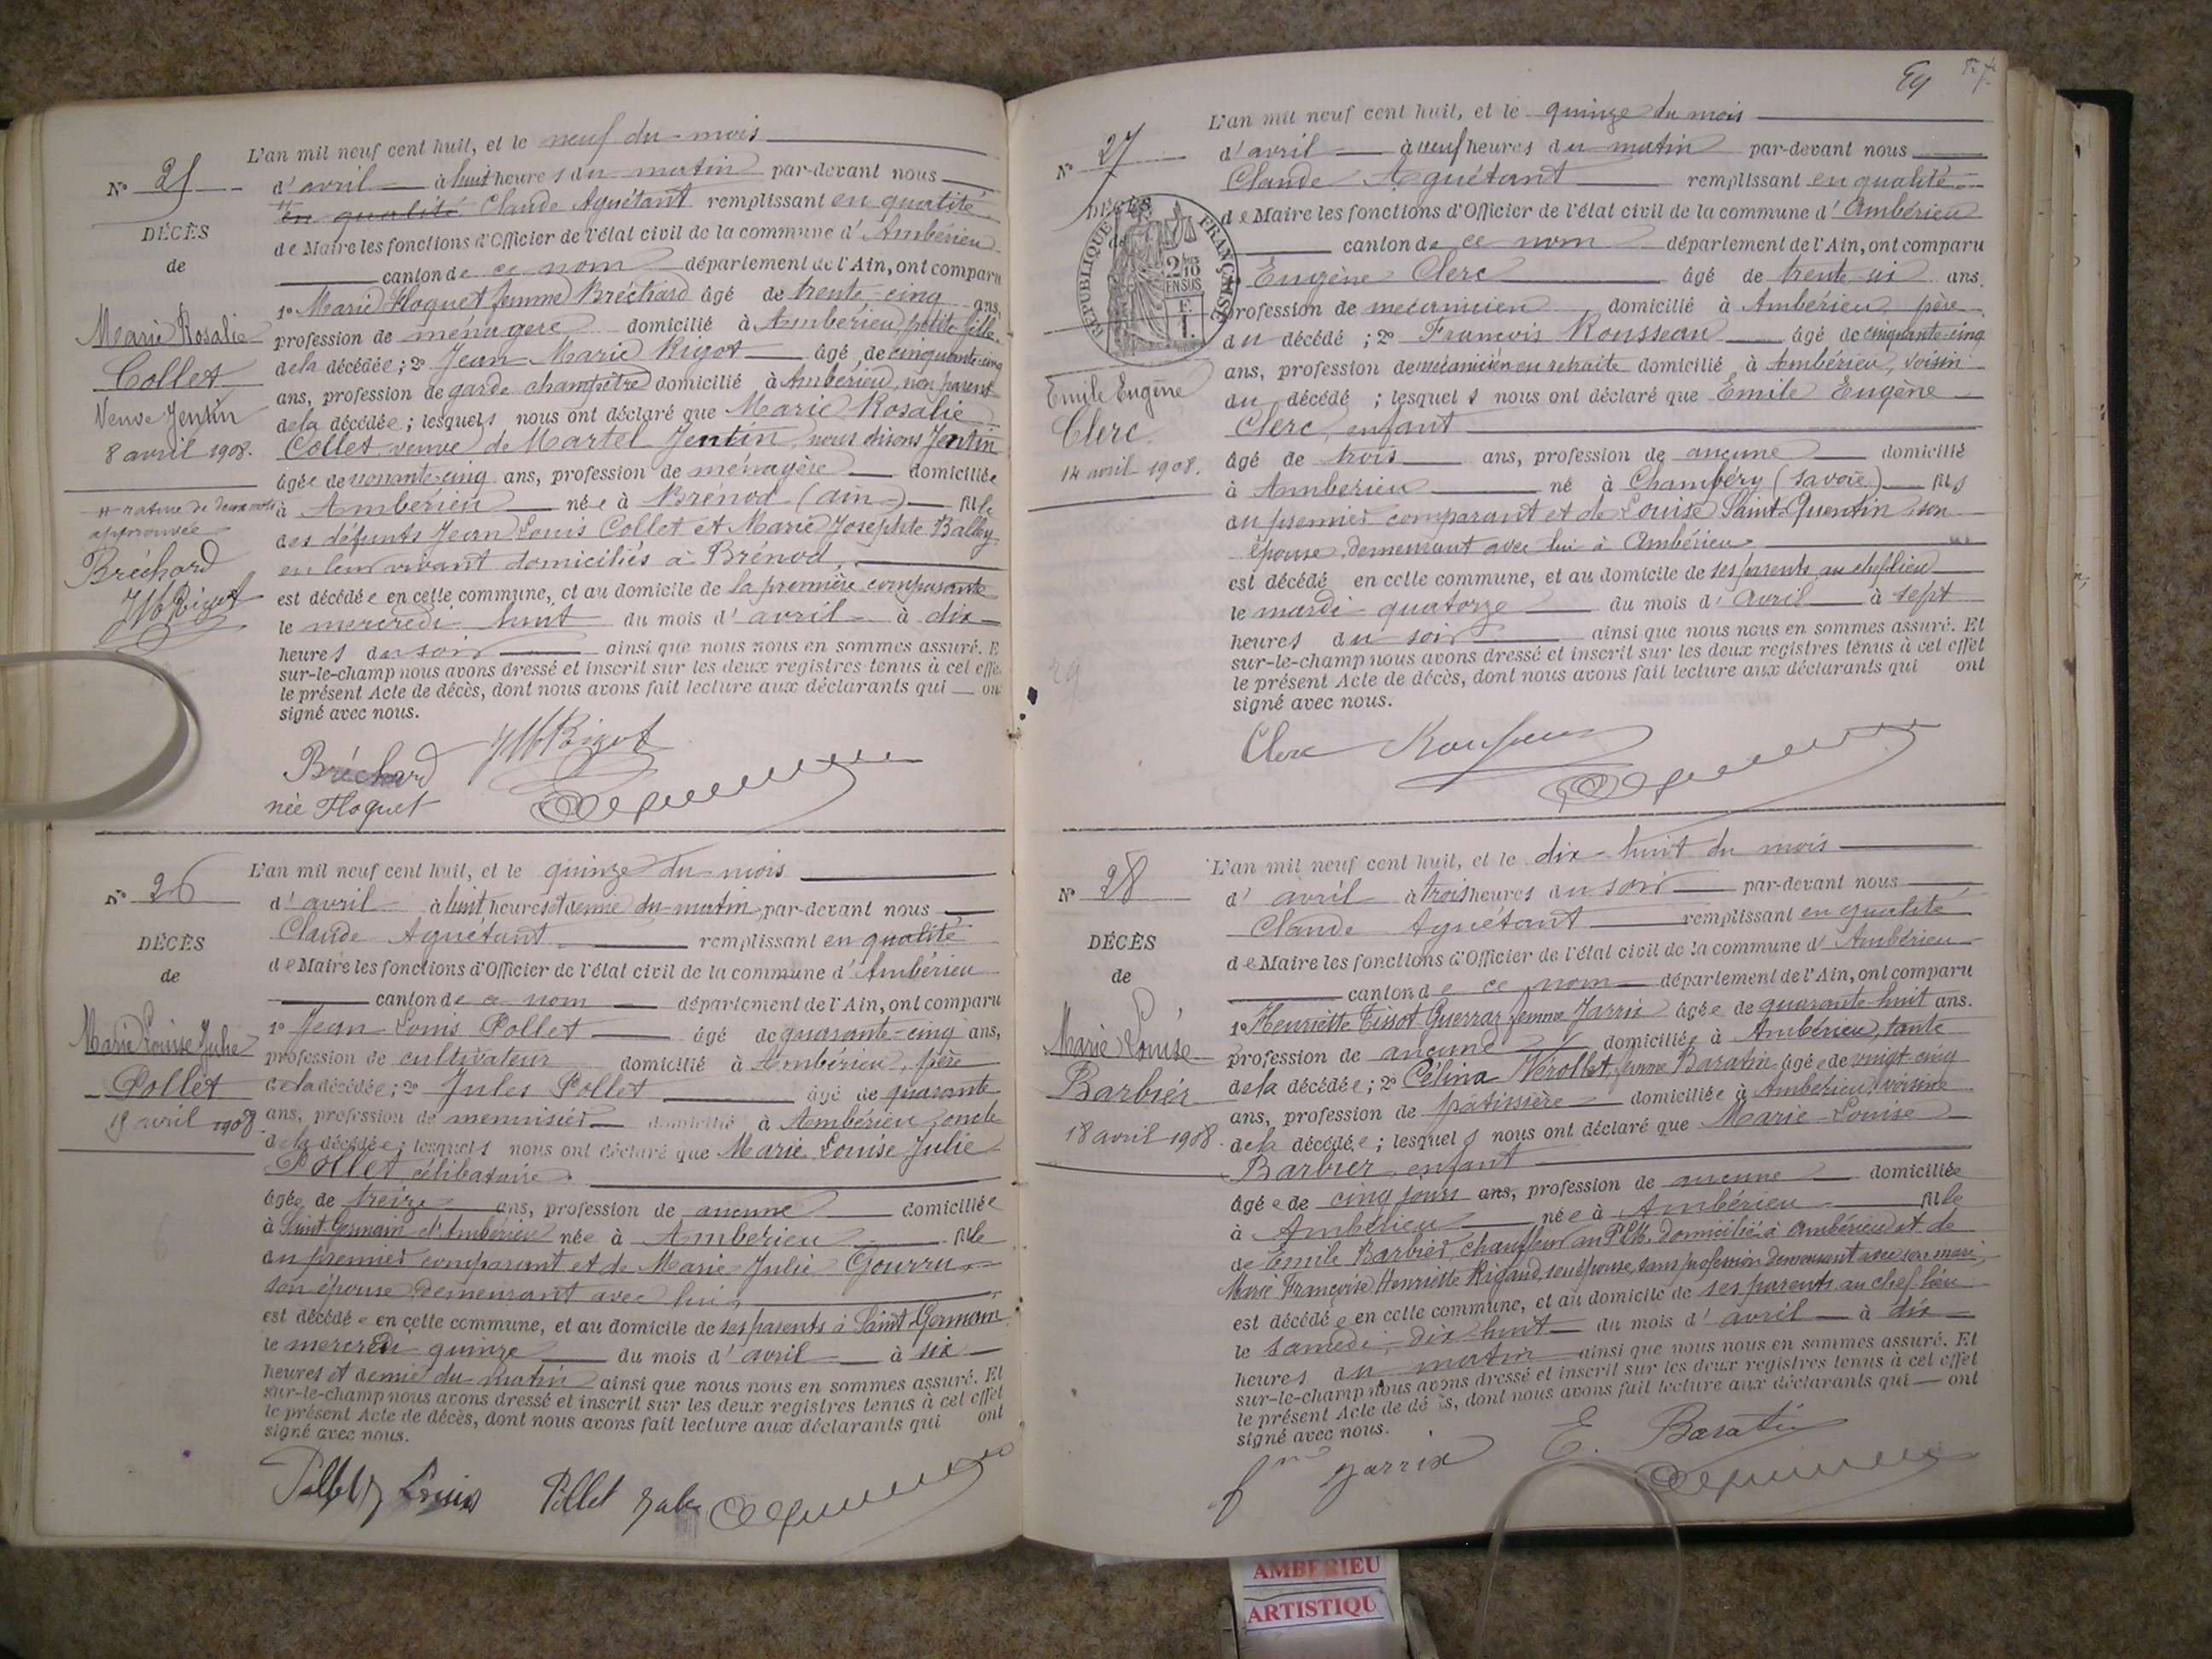 N° 25
DÉCÈS
de
Marie Rosalie
Collet
Veuve Jentin
8 avril 1908.
rature de deux mots
approuvée
Bréchard
JM Rigot
L'an mil neuf cent huit, et le neuf du mois
d'avril à huit heures du matin par-devant nous
en qualité Claude Aguétant remplissant en qualité
de Maire les fonctions d'Officier de l'état civil de la commune d'Ambérieu
canton de ce nom département de l'Ain, ont comparu
1° Marie Hoquet femme Bréchard âgé de trente-cinq ans,
profession de ménagère domicilié à Ambérieu, petite fille
de la décédée ; 2° Jean Marie Rigot âgé de cinquante-cinq
ans, profession de garde champêtre domicilié à Ambérieu, non parent
de la décédée ; lesquels nous ont déclaré que Marie Rosalie
Collet veuve de Martel Jentin, nous disons Jentin
âgée de nonante-cinq ans, profession de ménagère domiciliée
à Ambérieu née à Brénod (ain) fille
des défunts Jean Louis Collet et Marie Josephte Balley
en leur vivant domiciliés à Brénod,
est décédée en cette commune, et au domicile de la première comparante
le mercredi huit du mois d'avril à dix
heures du soir ainsi que nous nous en sommes assuré. E
sur-le-champ nous avons dressé et inscrit sur les deux registres tenus à cet effe
le présent Acte de décès, dont nous avons fait lecture aux déclarants qui on
signé avec nous.
Bréchard JM Rigot
née Hoquet
N° 26
DÉCÈS
de
Marie Louise Julie
Pollet
15 avril 1908
L'an mil neuf cent huit, et le quinze du mois
d'avril à huit heures et demie du matin par-devant nous
Claude Aguétant remplissant en qualité
de Maire les fonctions d'Officier de l'état civil de la commune d'Ambérieu
canton de ce nom département de l'Ain, ont comparu
1° Jean Louis Pollet âgé de quarante-cinq ans,
profession de cultivateur domicilié à Ambérieu, père
de la décédée ; 2° Jules Pollet âgé de quarante
ans, profession de menuisier domicilié à Ambérieu, oncle
de la décédée ; lesquels nous ont déclaré que Marie Louise Julie
Pollet célibataire
âgée de treize ans, profession de aucune domiciliée
à Saint Germain d'Ambérieu née à Ambérieu fille
du premier comparant et de Marie Julie Gourru
son épouse demeurant avec lui,
est décédée en cette commune, et au domicile de ses parents à Saint Germain
le mercredi quinze du mois d'avril à six
heures et demie du matin ainsi que nous nous en sommes assuré. Et
sur-le-champ nous avons dressé et inscrit sur les deux registres tenus à cet effet
le présent Acte de décès, dont nous avons fait lecture aux déclarants qui ont
signé avec nous.
Pollet Louis Pollet Jules
N° 27
DÉCÈS
de
RÉPUBLIQUE FRANÇAISE
2/10
EN SUS
Emile Eugène
Clerc
14 avril 1908.
L'an mil neuf cent huit, et le quinze du mois
d'avril à neuf heures du matin par-devant nous
Claude Aguétant remplissant en qualité
de Maire les fonctions d'Officier de l'état civil de la commune d'Ambérieu
canton de ce nom département de l'Ain, ont comparu
Eugène Clerc âgé de trente-six ans.
profession de mécanicien domicilié à Ambérieu père
du décédé ; 2° François Rousseau âgé de cinquante-cinq
ans, profession de mécanicien en retraite domicilié à Ambérieu, voisin
du décédé ; lesquels nous ont déclaré que Emile Eugène
Clerc, enfant
âgé de trois ans, profession de aucune domicilié
à Amberieu né à Chambéry (Savoie) fils
du premier comparant et de Louise Saint-Quentin son
épouse demeurant avec lui à Ambérieu
est décédé en cette commune, et au domicile de ses parents au chef lieu
le mardi quatorze du mois d'avril à sept
heures du soir ainsi que nous nous en sommes assuré. Et
sur-le-champ nous avons dressé et inscrit sur les deux registres tenus à cet effet
le présent Acte de décès, dont nous avons fait lecture aux déclarants qui ont
signé avec nous.
Clerc Rousseau
N° 28
DÉCÈS
de
Marie Louise
Barbier
18 avril 1908.
L'an mil neuf cent huit, et le dix-huit du mois
d'avril à trois heures du soir par-devant nous
Claude Aguétant remplissant en qualité
de Maire les fonctions d'Officier de l'état civil de la commune d'Ambérieu
canton de ce nom département de l'Ain, ont comparu
1° Henriette Tissot Guerraz femme Jarrix âgée de quarante-huit ans.
profession de aucune domiciliée à Ambérieu, tante
de la décédée ; 2° Célina Vérollet, femme Baratin âgée de vingt-cinq
ans, profession de pâtissière domiciliée à Ambérieu, voisine
de la décédée ; lesquels nous ont déclaré que Marie-Louise
Barbier enfant
âgée de cinq jours ans, profession de aucune domiciliée
à Ambérieu née à Ambérieu fille
de Emile Barbier, chauffeur au PLM. domicilié à Ambérieu et de
Marie Françoise Henriette Rigaud, son épouse, sans profession demeurant avec son mari,
est décédée en cette commune, et au domicile de ses parents au chef lieu
le samedi dix-huit du mois d'avril à dix
heures du matin ainsi que nous nous en sommes assuré. Et
sur-le-champ nous avons dressé et inscrit sur les deux registres tenus à cet effet
le présent Acte de décès, dont nous avons fait lecture aux déclarants qui ont
signé avec nous.
fme Jarrix E. Baratin
AMBERIEU
ARTISTIQU